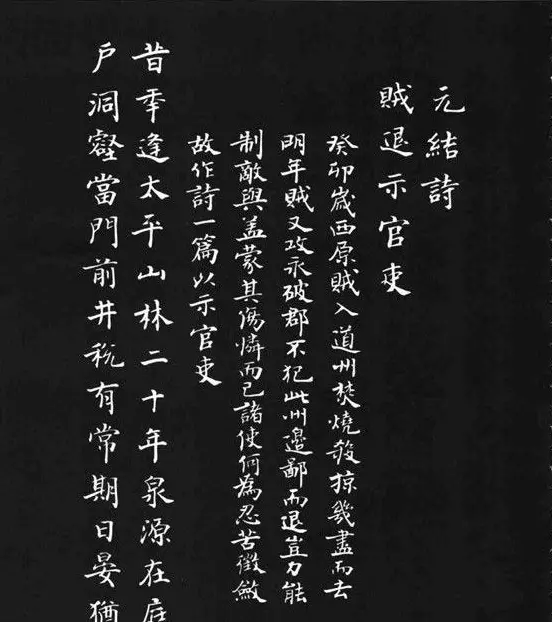 元結詩
賊退示官吏
癸卯歲西原賊入道州焚燒殺掠幾盡而去
明年賊又攻永破郡不犯此州邊鄙而退豈力能
制敵與蓋蒙其傷憐而已諸使何為忍苦徵斂
故作詩一篇以示官吏
昔季逢太平山林二十年泉源在庭
戶洞壑當門前井稅有常期日晏猶